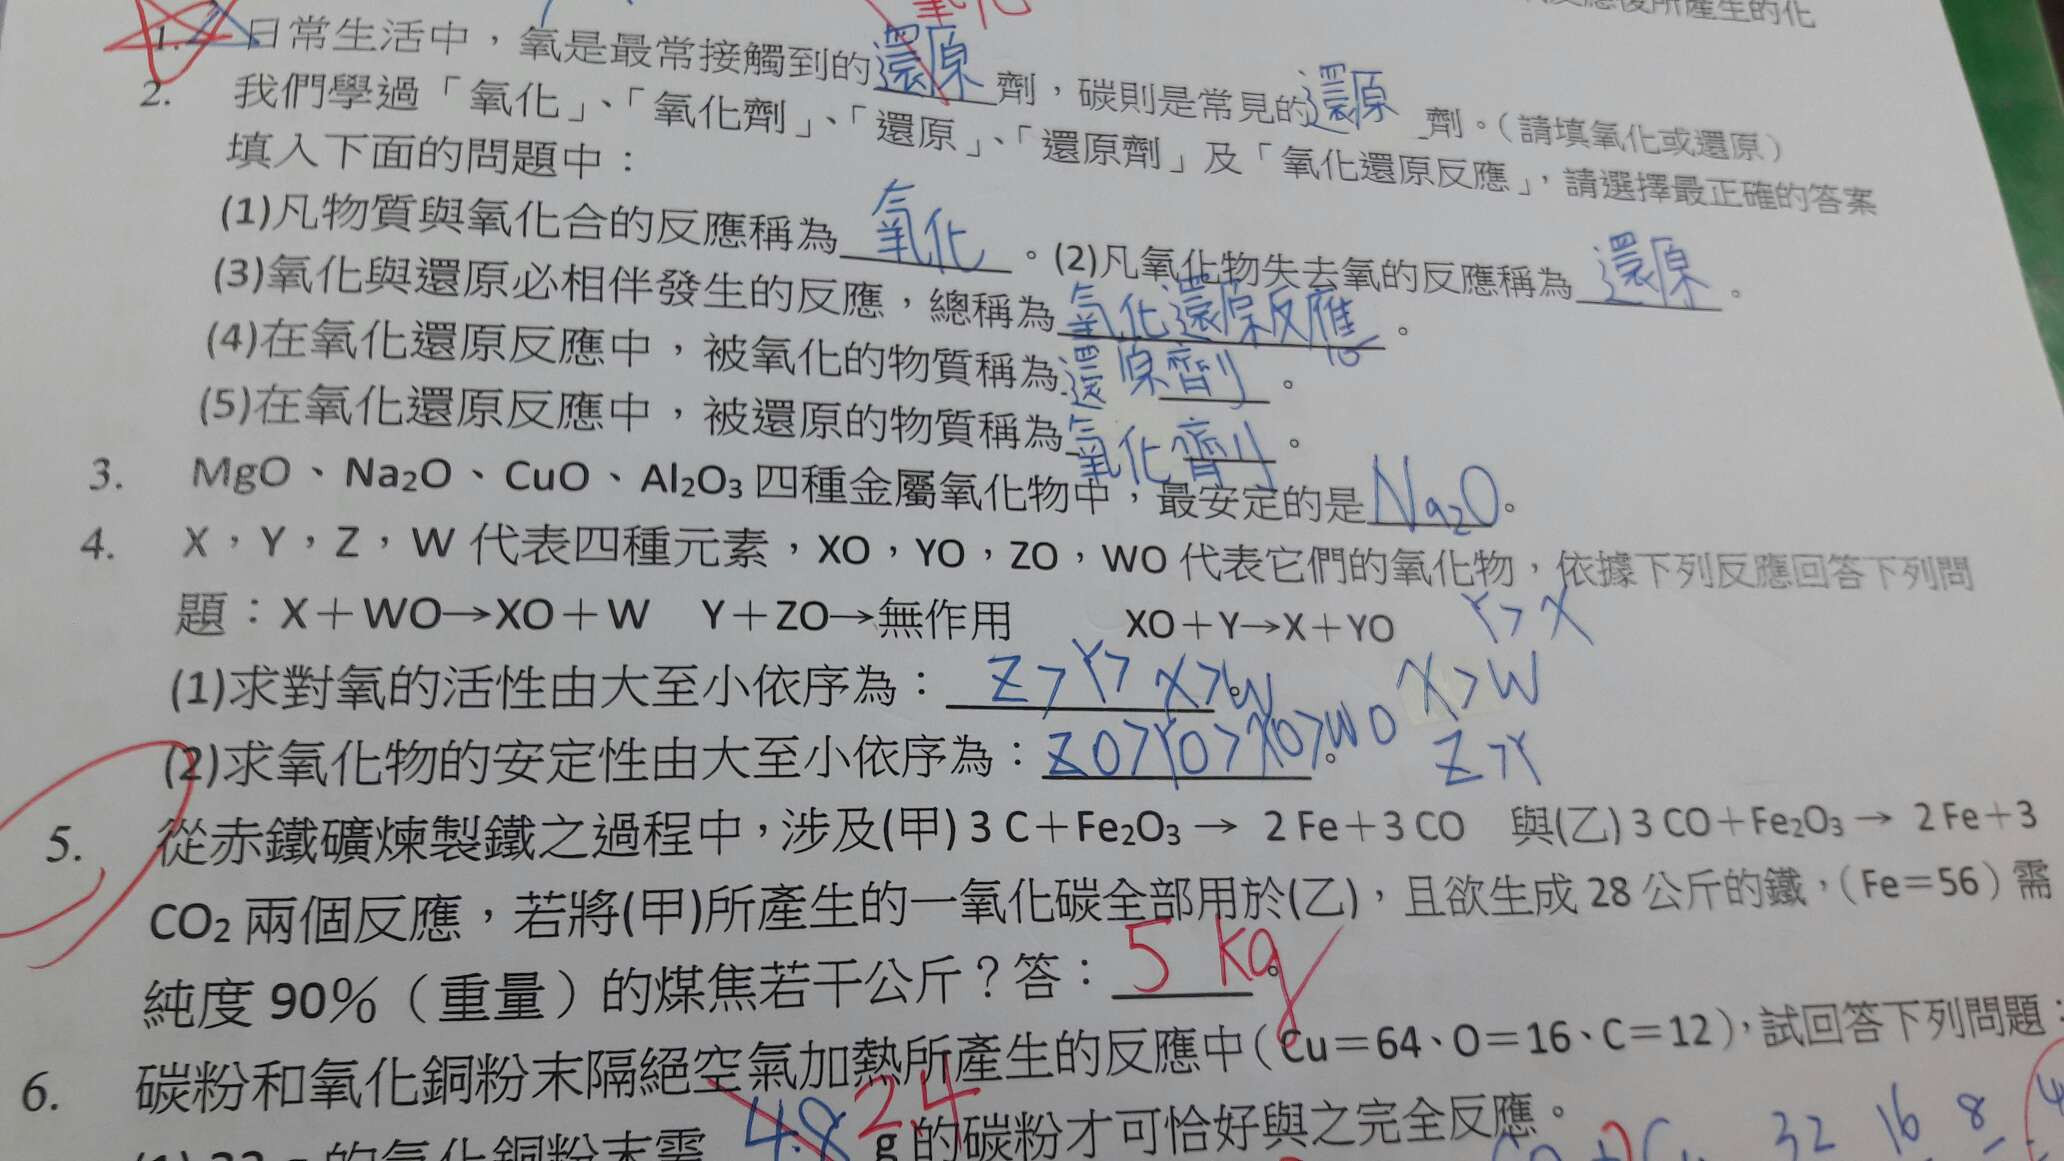 反應後所產生的化
氧化
1. 日常生活中，氧是最常接觸到的還原劑，碳則是常見的還原劑。（請填氧化或還原）
2. 我們學過「氧化」、「氧化劑」、「還原」、「還原劑」及「氧化還原反應」，請選擇最正確的答案
填入下面的問題中：
(1)凡物質與氧化合的反應稱為氧化。(2)凡氧化物失去氧的反應稱為還原。
(3)氧化與還原必相伴發生的反應，總稱為氧化還原反應。
(4)在氧化還原反應中，被氧化的物質稱為還原劑。
(5)在氧化還原反應中，被還原的物質稱為氧化劑。
3. MgO、Na₂O、CuO、Al₂O₃ 四種金屬氧化物中，最安定的是Na₂O。
4. X，Y，Z，W 代表四種元素，XO，YO，ZO，WO 代表它們的氧化物，依據下列反應回答下列問
題：X＋WO→XO＋W Y＋ZO→無作用 XO＋Y→X＋YO Y>X
(1)求對氧的活性由大至小依序為：Z>Y>X>W。 X>W
(2)求氧化物的安定性由大至小依序為：ZO>YO>XO>WO。 Z>Y
5. 從赤鐵礦煉製鐵之過程中，涉及(甲) 3 C＋Fe₂O₃→ 2 Fe＋3 CO 與(乙) 3 CO＋Fe₂O₃→ 2 Fe＋3
CO₂ 兩個反應，若將(甲)所產生的一氧化碳全部用於(乙)，且欲生成 28 公斤的鐵，（Fe＝56）需
純度 90％（重量）的煤焦若干公斤？答：5 kg。
6. 碳粉和氧化銅粉末隔絕空氣加熱所產生的反應中（Cu＝64、O＝16、C＝12），試回答下列問題：
(1) 32 g 的氧化銅粉末需 4.8 2.4 g 的碳粉才可恰好與之完全反應。
32 16 8